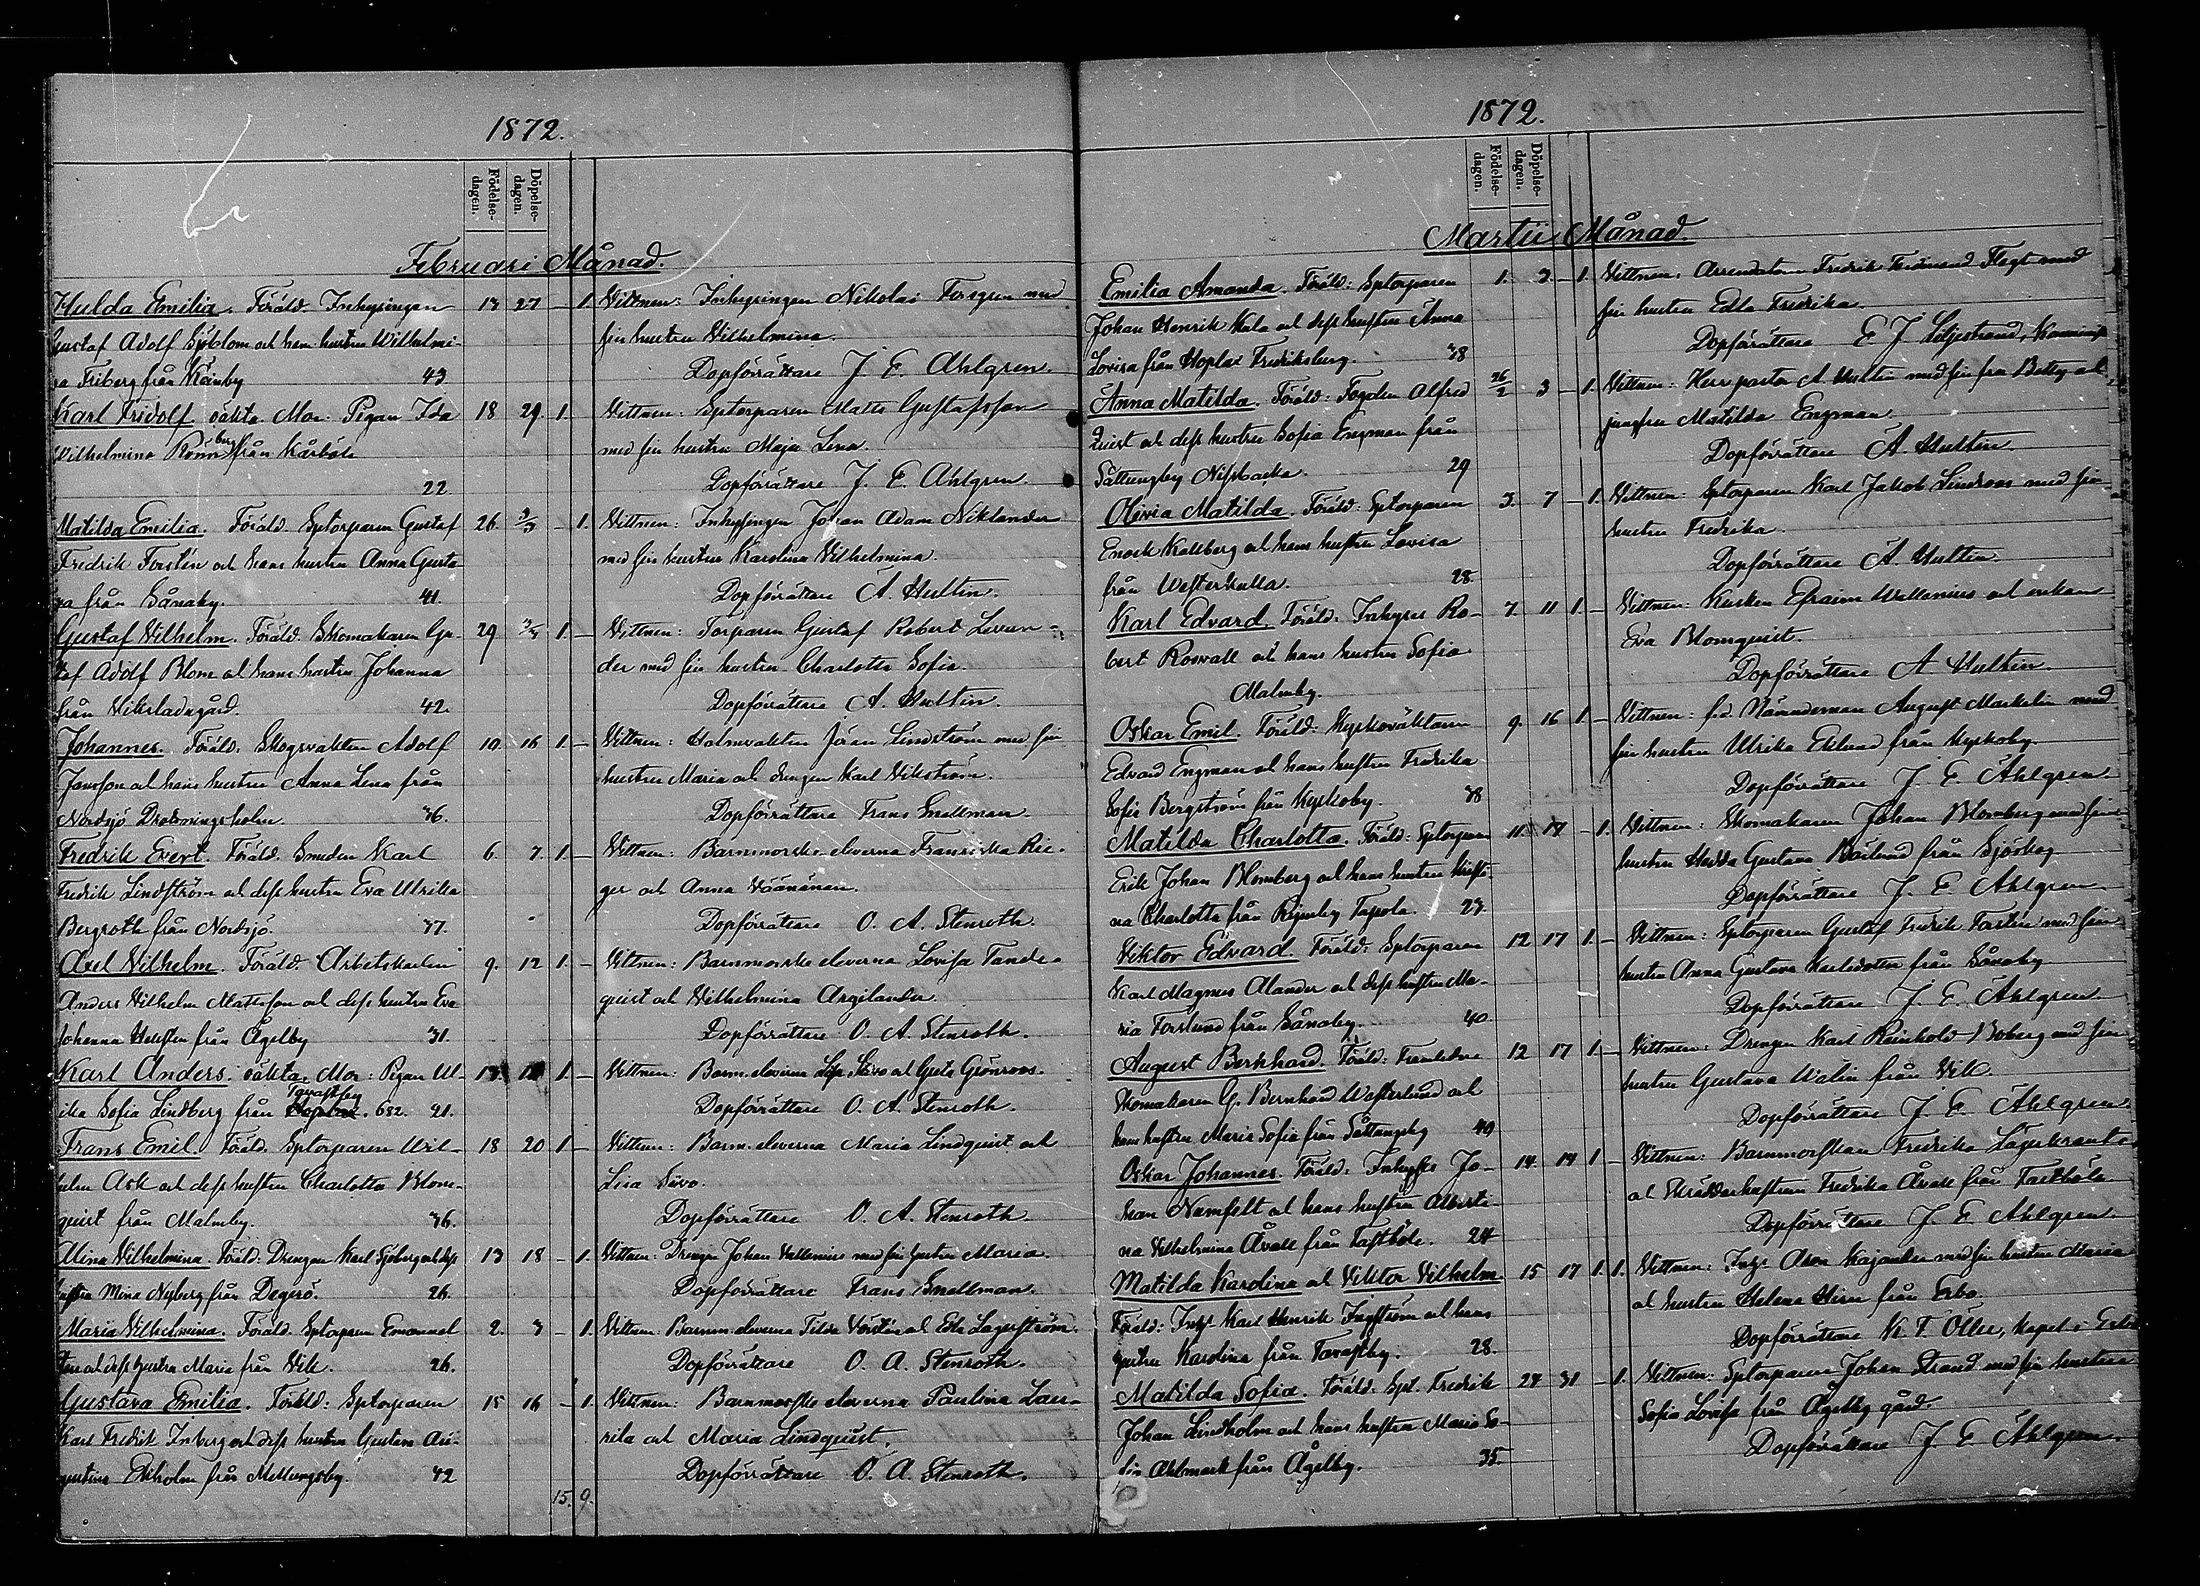 1872.
Födelse-dagen.
Döpelse-dagen.
Februari Månad.
Hulda Emilia. Föräld. Inhysingen 13 27 – 1.
Gustaf Adolf Sjöblom och hans hustru Wilhelmi-
na Friberg från Kånby 43
Vittnen: Inhysingen Nikolai Forsgren med
sin hustru Vilhelmina.
Dopförrättare J. E. Ahlgren.
Karl Fridolf oäkta. Mor: Pigan Ida 18 29. 1.
Wilhelmina Rönnberg från Kårböle
22.
Vittnen: Sptorparen Matts Gustafsson
med sin hustru Maja Lena.
Dopförrättare J. E. Ahlgren.
Matilda Emilia. Föräld. Sptorparen Gustaf 26. 3/3 – 1.
Fredrik Forstén och hans hustru Anna Gusta-
va från Sånaby. 41.
Vittnen: Inhysingen Johan Adam Niklander
med sin hustru Karolina Vilhelmina.
Dopförrättare A. Hultin.
Gustaf Vilhelm. Föräld. Skomakaren Gu- 29 3/3 1. –
staf Adolf Blom och hans hustru Johanna
från Viksladugård. 42.
Vittnen: Torparen Gustaf Robert Levan-
der med sin hustru Charlotta Sofia.
Dopförrättare A. Hultin.
Johannes. Föräld. Skogsvakten Adolf 10 16 1 –
Jansson och hans hustru Anna Lena från
Nordsjö Drottningholm 36.
Vittnen: Holmvakten Jöran Lindström med sin
hustru Maria och drengen Karl Vikström.
Dopförrättare Frans Snellman.
Fredrik Evert. Föräld. Smeden Karl 6. 7. 1 –
Fredrik Lindström och dess hustru Eva Ulrika
Bergroth från Nordsjö. 37.
Vittnen: Barnmorske eleverna Fransiska Rie-
ger och Anna Väänänen.
Dopförrättare O. A. Stenroth.
Axel Vilhelm. Föräld. Arbetskarlen 9. 12 1 –
Anders Vilhelm Mattsson och dess hustru Eva
Johanna Hellsten från Ågelby 31.
Vittnen: Barnmorske eleverna Lovisa Tande-
quist och Vilhelmina Argilander.
Dopförrättare O. A. Stenroth.
Karl Anders. oäkta. Mor: Pigan Ul- 1 –
rika Sofia Lindberg från Tavastby 682. 21.
Vittnen: Barn. eleverna Lisa Sirvo och Greta Grönroos.
Dopförrättare O. A. Stenroth.
Frans Emil. Föräld. Sptorparen Wil- 18 20 1 –
helm Ask och dess hustru Charlotta Blom-
quist från Malmby. 36.
Vittnen: Barn. eleverna Maria Lindquist och
Lisa Sirvo.
Dopförrättare O. A. Stenroth.
Mina Vilhelmina. Föräld. Drengen Karl Sjöberg och dess 13 18 – 1.
hustru Mina Nyberg från Degerö. 26.
Vittnen: Drengen Johan Vallenius med sin hustru Maria.
Dopförrättare Frans Snellman.
Maria Vilhelmina. Föräld. Sptorparen Emanuel 2. 3 – 1.
och dess hustru Maria från Vik. 26.
Vittnen: Barnm. eleverna Tilda Forstén och Edla Lagerström.
Dopförrättare O. A. Stenroth.
Gustava Emilia. Föräld: Sptorparen 15 16 – 1.
Karl Fredrik Inberg och dess hustru Gustava Au-
gustina Ekholm från Mellungsby. 42
Vittnen: Barnmorske eleverna Paulina Lau-
rila och Maria Lindquist.
Dopförrättare O. A. Stenroth.
15. 9.
1872.
Födelse-dagen.
Döpelse-dagen.
Martii Månad.
Emilia Amanda. Föräld: Sptorparen 1. 3 – 1.
Johan Henrik Kula och dess hustru Anna
Lovisa från Hoplax Fredriksberg. 38
Vittnen: Arrendatorn Fredrik Ferdinand Flegt med
sin hustru Edla Fredrika.
Dopförrättare E J Liljestrand,
Anna Matilda. Föräld: Fogden Alfred 26/2 3 – 1.
Quist och dess hustru Sofia Engman från
Sättungsby Nissbacka. 29
Vittnen: Herr pastor A Hultin med sin fru Betty och
jungfru Matilda Engman.
Dopförrättare A Hultin.
Olivia Matilda. Föräld: Sptorparen 3. 7 – 1.
Enock Kallberg och hans hustru Lovisa
från Westerkulla. 28.
Vittnen: Sptorparen Karl Jakob Lindroos med sin
hustru Fredrika.
Dopförrättare A. Hultin.
Karl Edvard. Föräld: Inhyses Ro- 7. 11 1. –
bert Roswall och hans hustru Sofia
Malmby.
Vittnen: Kusken Efraim Wallenius och enkan
Eva Blomquist.
Dopförrättare A Hultin.
Oskar Emil. Föräld: Kyrkoväktaren 9. 16 1. –
Edvard Engman och hans hustru Fredrika
Sofia Bergström från Kyrkoby. 38
Vittnen: f.d. Nämndeman August Markelin med
sin hustru Ulrika Eklund från Kyrkoby.
Dopförrättare J. E. Ahlgren
Matilda Charlotta. Föräld: Sptorparen 11 17 – 1.
Erik Johan Blomberg och hans hustru Kristi-
na Charlotta från Rijmby Tapola. 23.
Vittnen: Skomakaren Johan Blomberg med sin
hustru Hedda Gustava Roslund från Sjöskog
Dopförrättare J. E. Ahlgren
Viktor Edvard. Föräld: Sptorparen 12 17 1. –
Karl Magnus Alander och dess hustru Ma-
ria Forslund från Sånaby. 40.
Vittnen: Sptorparen Gustaf Fredrik Forstén med sin
hustru Anna Gustava Karlsdotter från Sånaby
Dopförrättare J. E. Ahlgren
August Bernhard. Föräld: Framlidne 12 17 1. –
Skomakaren G. Bernhard Westerlund och
hans hustru Maria Sofia från Sättungsby 40
Vittnen: Drengen Karl Reinhold Boberg med sin
hustru Gustava Walin från Vik.
Dopförrättare J. E. Ahlgren
Oskar Johannes. Föräld: Inhyses Jo- 14. 17 1 –
han Numfelt och hans hustru Alberti-
na Vilhelmina Åvall från Tastböle. 24
Vittnen: Barnmorskan Fredrika Lagercrantz
och Skräddarhustrun Fredrika Åvall från Tastböle
Dopförrättare J. E. Ahlgren.
Matilda Karolina och Viktor Vilhelm. 15 17 1. 1.
Föräld: Inhs Karl Henrik Ingström och hans
hustru Karolina från Tavastby. 28.
Vittnen: Inhs Aron Kajander med sin hustru Maria
och hustru Helena Hirn från Esbo.
Dopförrättare K. T. Ollu, kapel. i Esbo
Matilda Sofia. Föräld: Spt. Fredrik 27 31 – 1.
Johan Lindholm och hans hustru Maria So-
fia Ahlmark från Ågelby. 35.
Vittnen: Sptorparen Johan Strand med sin hustru
Sofia Lovisa från Ågelby gård.
Dopförrättare J. E Ahlgren.